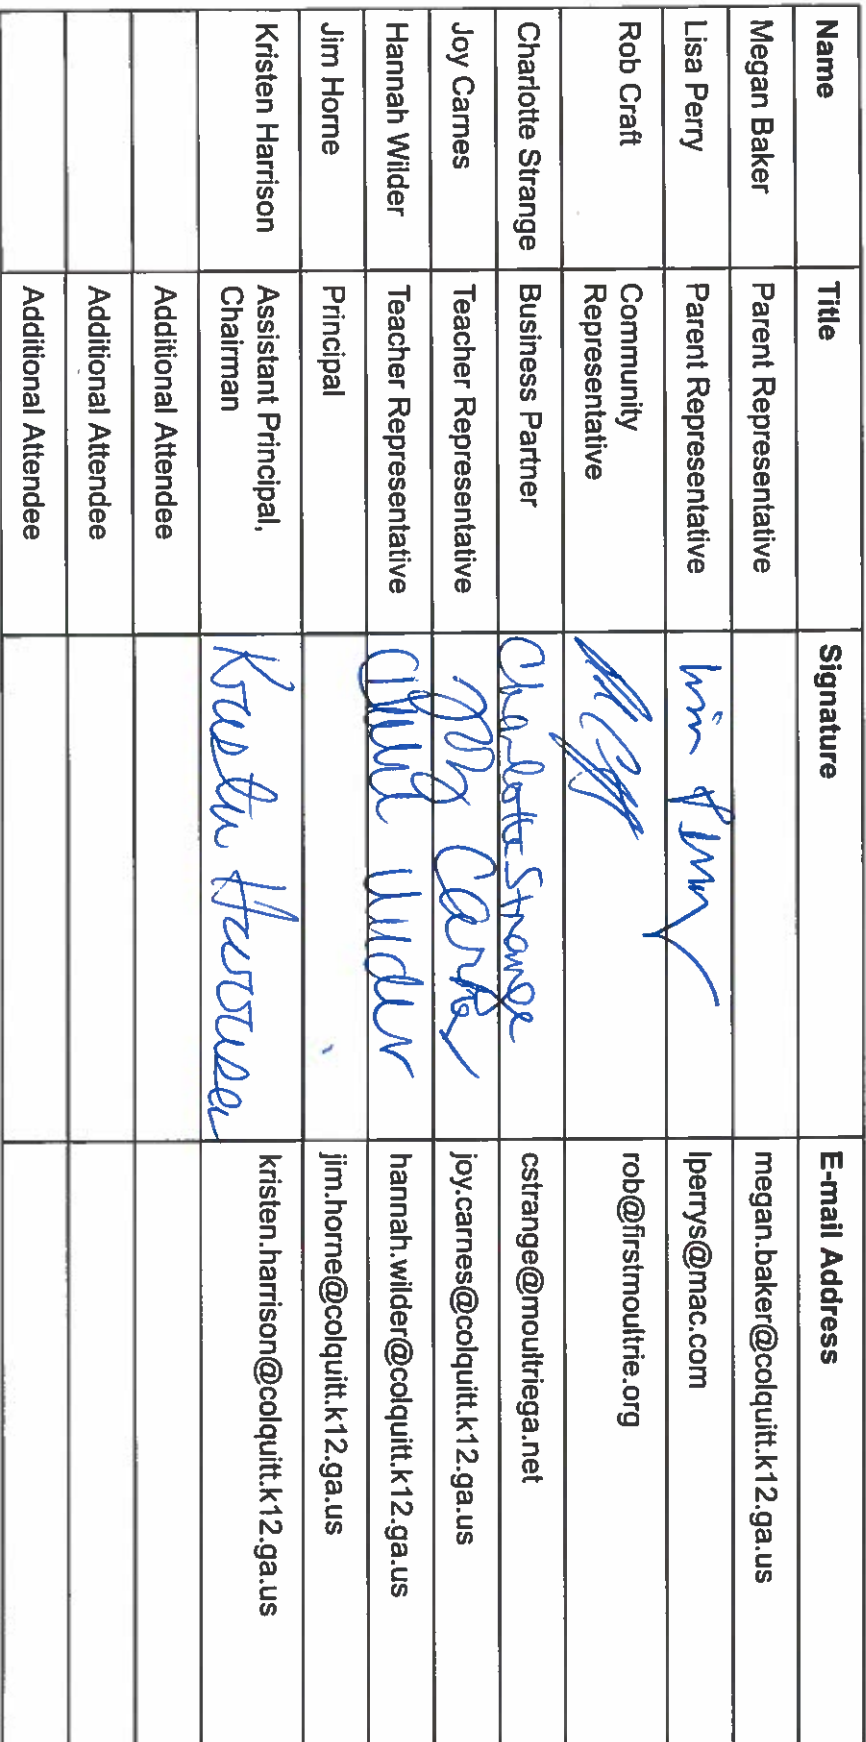 Name Title Signature E-mail Address
Megan Baker Parent Representative megan.baker@colquitt.k12.ga.us
Lisa Perry Parent Representative lperrys@mac.com
Rob Craft Community
Representative rob@firstmoultrie.org
Charlotte Strange Business Partner Charlotte Strange cstrange@moultriega.net
Joy Carnes Teacher Representative Joy Carnes joy.carnes@colquitt.k12.ga.us
Hannah Wilder Teacher Representative Wilder hannah.wilder@colquitt.k12.ga.us
Jim Horne Principal jim.horne@colquitt.k12.ga.us
Kristen Harrison Assistant Principal,
Chairman Kristen Harrison kristen.harrison@colquitt.k12.ga.us
Additional Attendee
Additional Attendee
Additional Attendee